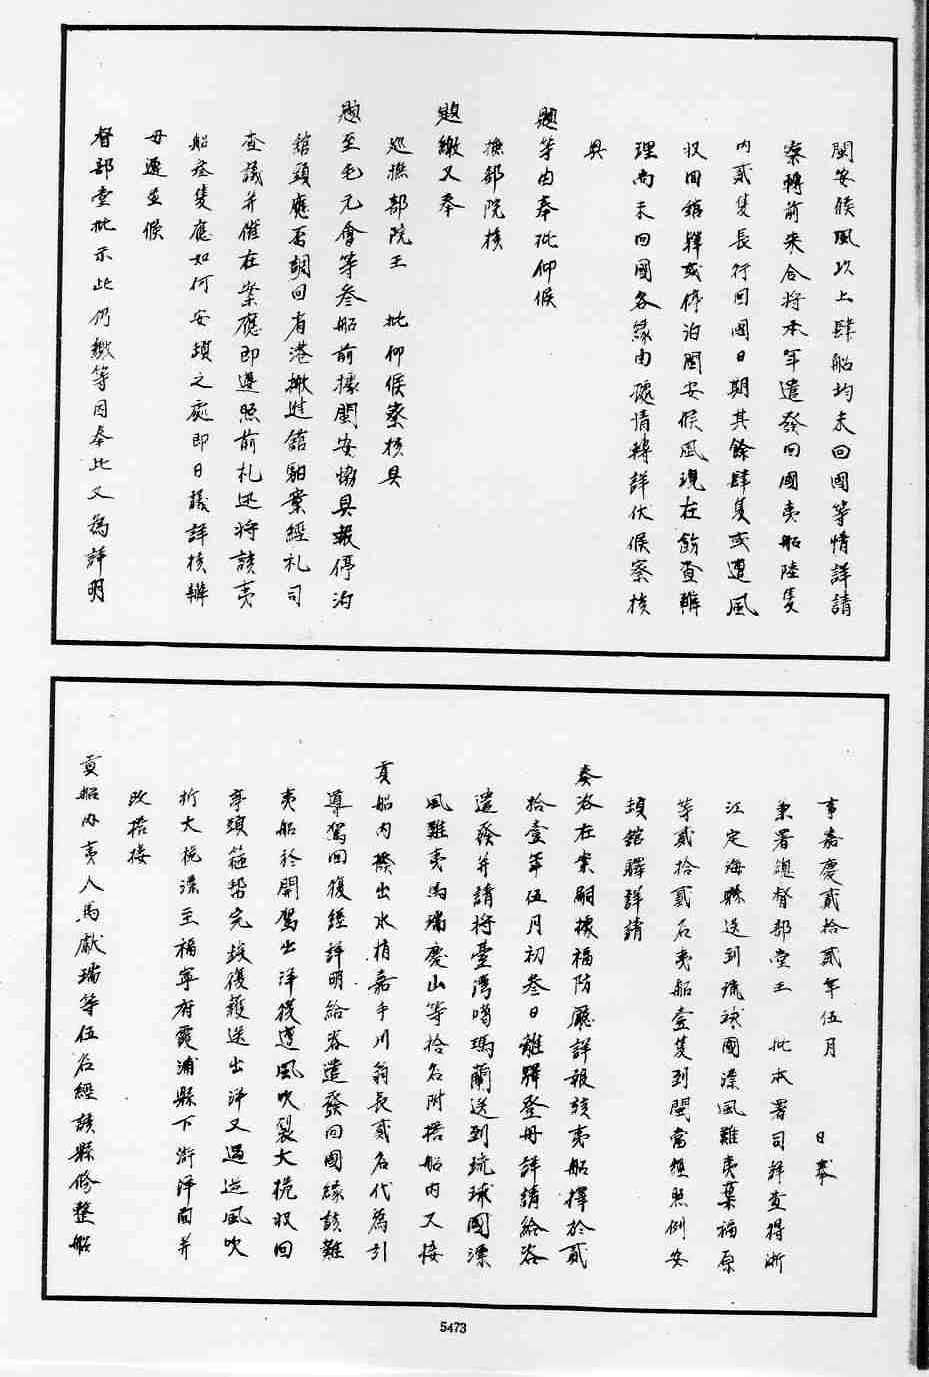 閩安候風以上肆船均未回國等情詳請
察轉前來合將本年遣發回國夷船陸隻
內貳隻長行回國日期其餘肆隻或遭風
收回館驛或停泊閩安候風現在飭查辦
理尚未回國各緣由據情轉詳伏候察核
具
題等由奉批仰候
撫部院核
題繳又奉
巡撫部院王 批仰候察核具
題至毛元會等叁船前據閩安協具報停泊
館頭應否調回省港撤進館驛業經札司
查議并催在案應即遵照前札迅將該夷
船叁隻應如何安頓之處即日議詳核辦
毋遲並候
督部堂批示此仍繳等因奉此又為詳明
事嘉慶貳拾貳年伍月 日奉
兼署總督部堂王 批本署司詳查得浙
江定海縣送到琉球國漂風難夷葉福原
等貳拾貳名夷船壹隻到閩當經照例安
頓館驛詳請
奏洛在案嗣據福防廳詳報該夷船擇於貳
拾壹年伍月初叁日離驛登舟詳請給咨
遣發并請將臺灣噶瑪蘭送到琉球國漂
風難夷馬瑞慶山等拾名附搭船內又接
貢船內撥出水梢嘉手川翁長貳名代為引
導駕回復經詳明給咨遣發回國緣該難
夷船於開駕出洋後遭風吹裂大桅收回
亭頭箍幫完竣復護送出洋又遇逆風吹
折大桅漂至福寧府霞浦縣下滸洋面并
改搭接
貢船內夷人馬獻瑞等伍名經該縣修整船
5473